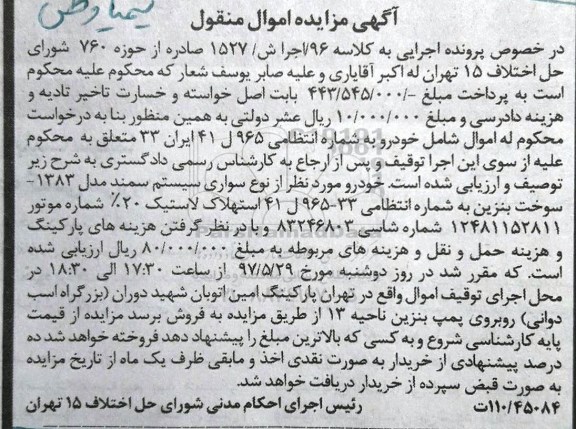 کیمیا وطن
آگهی مزایده اموال منقول
در خصوص پرونده اجرایی به کلاسه ۹۶/اجرا ش/ ۱۵۲۷ صادره از حوزه ۷۶۰ شورای
حل اختلاف ۱۵ تهران له اکبر آقایاری و علیه صابر یوسف شعار که محکوم علیه محکوم
است به پرداخت مبلغ -/۴۴۳/۵۴۵/۰۰۰ بابت اصل خواسته و خسارت تاخیر تادیه و
هزینه دادرسی و مبلغ ۱۰/۰۰۰/۰۰۰ ریال عشر دولتی به همین منظور بنا به درخواست
محکوم له اموال شامل خودرو به شماره انتظامی ۹۶۵ ل ۴۱ ایران ۳۳ متعلق به محکوم
علیه از سوی این اجرا توقیف و پس از ارجاع به کارشناس رسمی دادگستری به شرح زیر
توصیف و ارزیابی شده است. خودرو مورد نظر از نوع سواری سیستم سمند مدل ۱۳۸۳-
سوخت بنزین به شماره انتظامی ۳۳-۹۶۵ ل ۴۱ استهلاک لاستیک ۲۰٪ شماره موتور
۱۲۴۸۱۱۵۲۸۱۱ شماره شاسی ۸۳۲۴۶۸۰۳ و با در نظر گرفتن هزینه های پارکینگ
و هزینه حمل و نقل و هزینه های مربوطه به مبلغ ۸۰/۰۰۰/۰۰۰ ریال ارزیابی شده
است. که مقرر شد در روز دوشنبه مورخ ۹۷/۵/۲۹ از ساعت ۱۷:۳۰ الی ۱۸:۳۰ در
محل اجرای توقیف اموال واقع در تهران پارکینگ امین اتوبان شهید دوران (بزرگراه اسب
دوانی) روبروی پمپ بنزین ناحیه ۱۳ از طریق مزایده به فروش برسد مزایده از قیمت
پایه کارشناسی شروع و به کسی که بالاترین مبلغ را پیشنهاد دهد فروخته خواهد شد ده
درصد پیشنهادی از خریدار به صورت نقدی اخذ و مابقی ظرف یک ماه از تاریخ مزایده
به صورت قبض سپرده از خریدار دریافت خواهد شد.
۱۱۰/۴۵۰۸۴ت رئیس اجرای احکام مدنی شورای حل اختلاف ۱۵ تهران